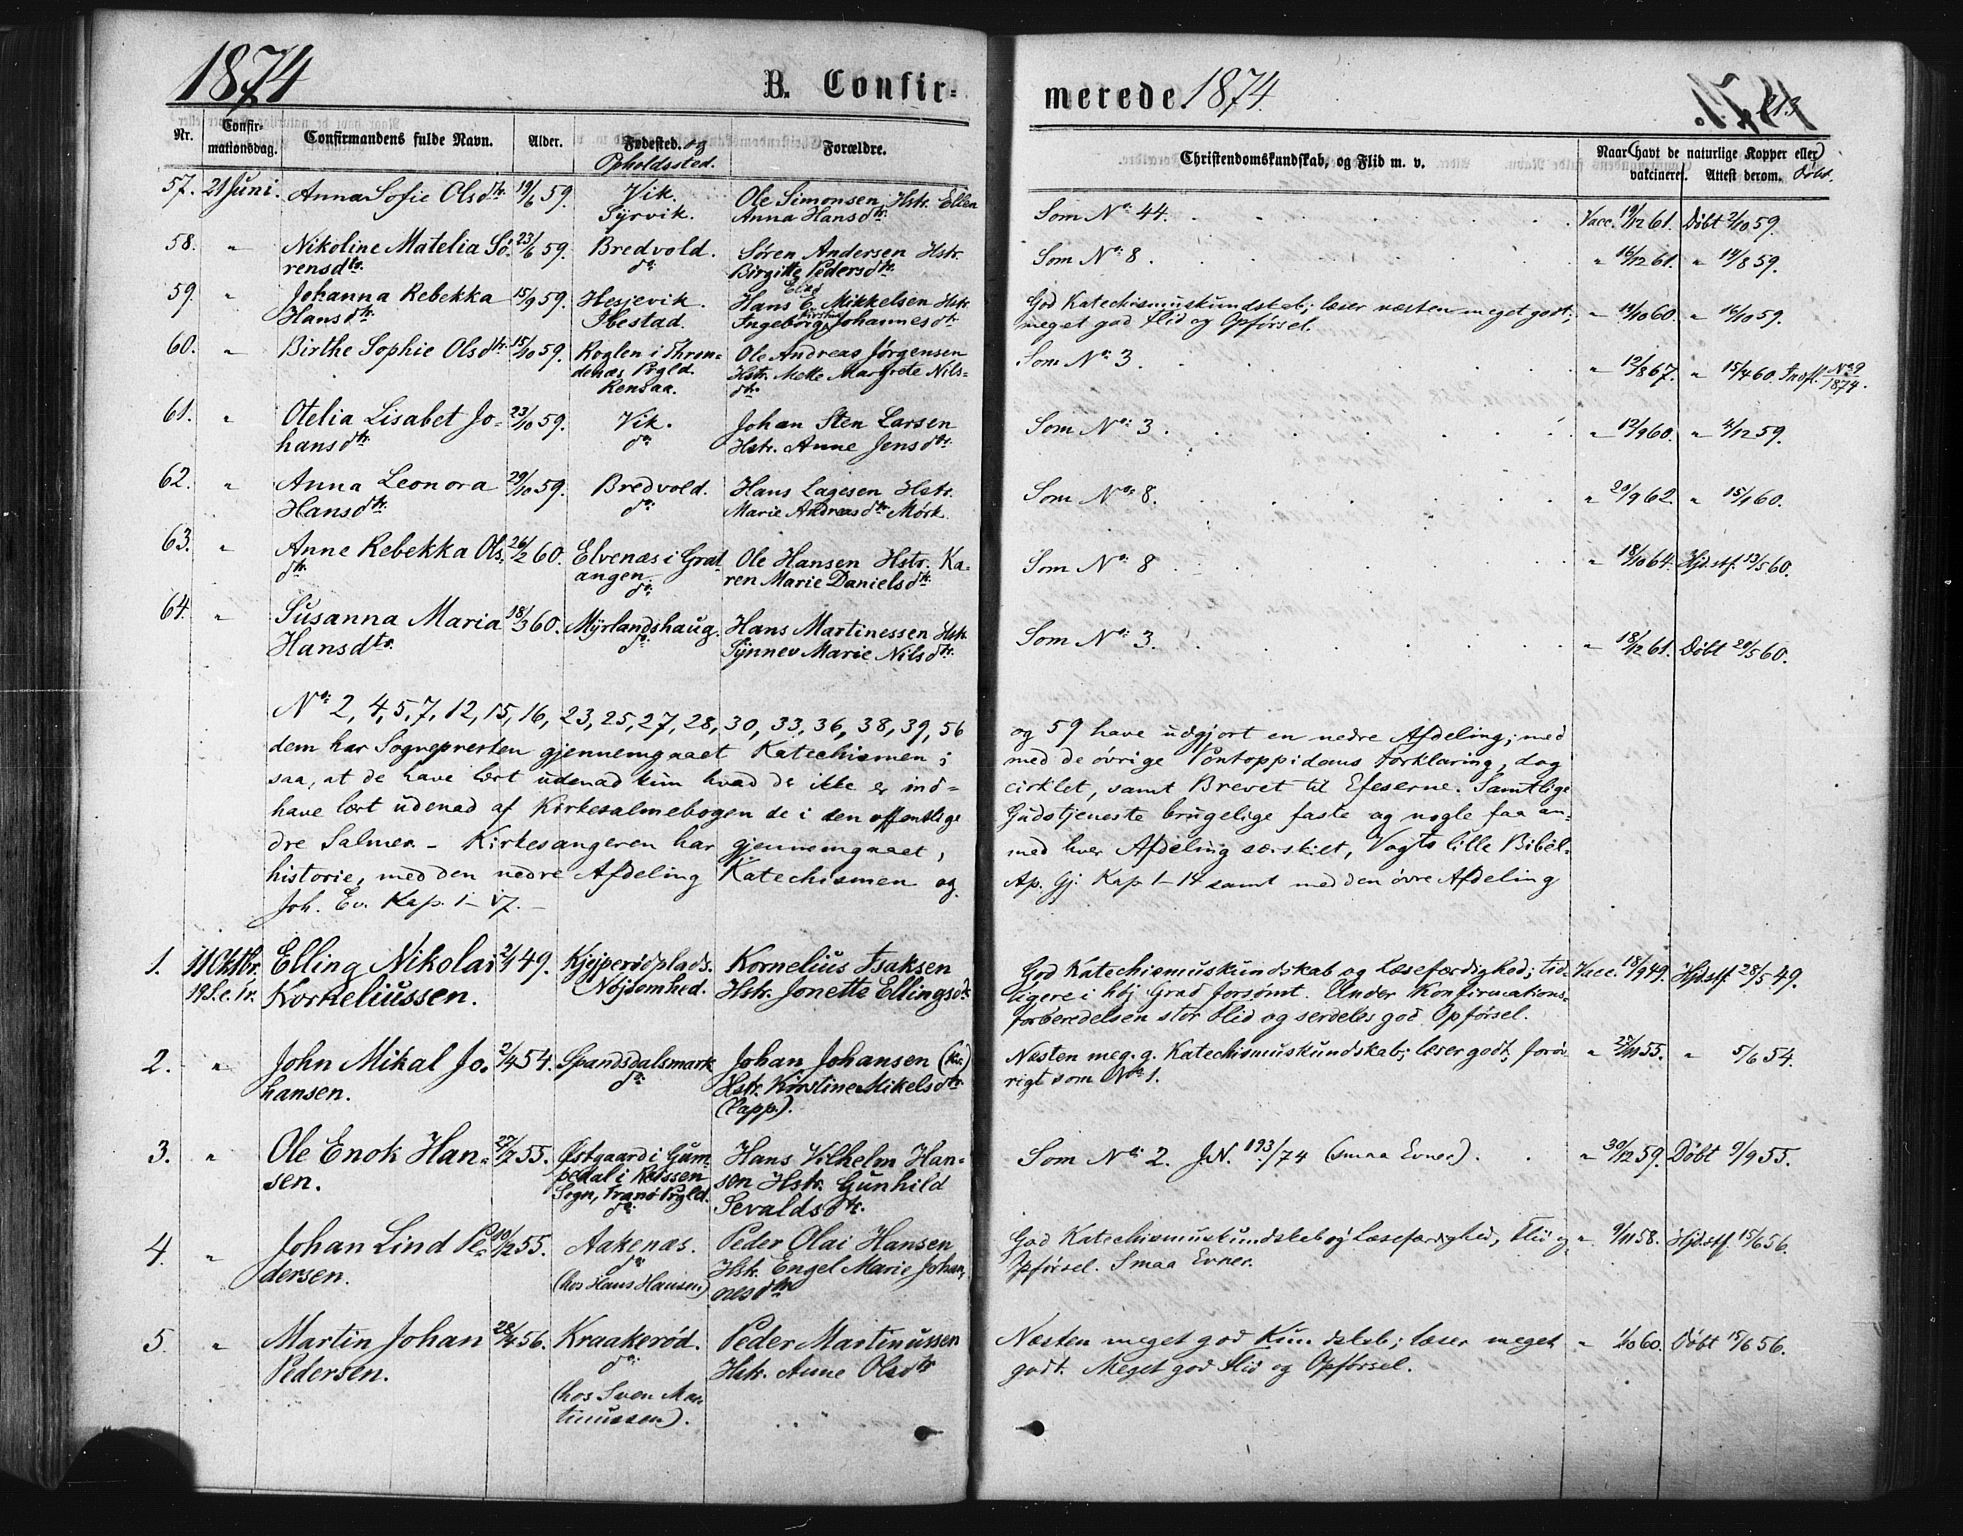 1874
B. Confir-
merede. 1874.
213
Nr.
Confir-
mationsdag.
Confirmandens fulde Navn.
Alder.
Fødested. og
Opholdssted.
Forældre.
Christendomskundskab, og Flid m. v.
Naar (havt de naturlige Kopper eller)
vakcineret.
Attest derom.
Døbt.
57. 21 Juni. Anna Sofie Olsdtr. 19/6 59. Vik. Ole Simonsen Hstr. Ellen
Syrvik. Anna Hansdtr.
Som No. 44. Vacc. 19/12 61. Døbt 2/10 59.
58. " Nikoline Matelia Sö- 23/6 59. Bredvold. Søren Andersen Hstr.
rensdtr. do. Birgitte Pedersdtr.
Som No. 8. " 16/12 61. " 14/8 59.
59. " Johanna Rebekka 15/9 59. Hesjevik. Hans E. Mikkelsen Hstr.
Hansdtr. Ibestad. Ingeborg Johannesdtr.
God Katechismuskundskab; læser næsten meget godt;
meget god Flid og Opførsel.
" 14/10 60. " 16/10 59.
60. " Birthe Sophie Olsdtr. 15/10 59. Roglen i Thron- Ole Andreas Jørgensen
denæs Prgld. Hstr. Mette Margrete Nils-
Rensaa. dtr.
Som No. 3. " 12/8 67. " 15/4 60. Indfl. No 9/1874.
61. " Otelia Lisabet Jo- 23/10 59. Vik. Johan Sten Larsen
hansdtr. do. Hstr. Anne Jensdtr.
Som No. 3. " 12/9 60. " 4/12 59.
62. " Anna Leonora 29/10 59. Bredvold. Hans Lagesen Hstr.
Hansdtr. do. Marie Andreasdtr. Mørk.
Som No. 8. " 20/9 62. " 15/1 60.
63. " Anne Rebekka Ols- 26/2 60. Elvenæs i Grat- Ole Hansen Hstr. Ka-
dtr. angen do. ren Marie Danielsdtr.
Som No. 8 " 18/10 64. Hjdøf. 13/5 60.
64. " Susanna Maria 18/3 60. Myrlandshaug. Hans Martinessen Hstr.
Hansdtr. do. Synnev Marie Nilsdtr.
Som No. 3. " 18/12 61. Døbt 20/5 60.
No. 2, 4, 5, 7, 12, 15, 16, 23, 25, 27, 28, 30, 33, 36, 38, 39, 56
og 59 have udgjort en nedre Afdeling; med
dem har Sognepresten gjennemgaaet Katechismen;
med de øvrige Pontoppidans Forklaring, dog
saa, at de have lært udenad kun hvad der ikke er ind-
cirklet, samt Brevet til Efeserne. Samtlige
have lært udenad af Kirkesalmebogen de i den offentlige
Gudstjeneste brugelige faste og nogle faa an-
dre Salmer. – Kirkesangeren har gjennemgaaet,
med hver Afdeling særskilt, Vogts lille Bibel-
historie, med den nedre Afdeling Katechismen og
Ap. Gj. Kap 1–14 samt med den øvre Afdeling
Joh. Ev. Kap. 1–17. –
1. 11 Oktbr. Elling Nikolai 2/1 49. Kjejperødplads. Kornelius Isaksen
19 S. e. Tr. Korneliussen. Nøjsomhed. Hstr. Jonette Ellingsdtr.
God Katechismuskundskab og Læsefærdighed; tid- Vacc. 18/9 49. Hjdøf. 28/5 49.
ligere i høj Grad forsømt. Under Konfirmations-
forberedelsen stor Flid og serdeles god Opførsel.
2. " John Mikal Jo- 2/4 54. Spansdalsmark Johan Johansen
hansen. do. Hstr. Kirstine Mikelsdtr.
(Lapp.).
Næsten meg. g. Katechismuskundskab; læser godt; forøv-
rigt som No. 1.
" 25/11 55. " 5/6 54.
3. " Ole Enok Han- 27/7 55. Østgaard i Gum- Hans Vilhelm Han-
sen. pedal i Reissen sen Hstr. Gunhild
Sogn, Tranø Prgld. Sevaldsdtr.
do.
Som No. 2. J.N. 193/74 (smaa Evner). " 30/12 59. Døbt 9/9 55.
4. " Johan Lind Pe- 10/12 55. Aakenæs. Peder Olai Hansen
dersen. do. Hstr. Engel Marie Johan-
(hos Hans Hansen) nesdtr.
God Katechismuskundskab og Læsefærdighed, Flid og " 9/11 58. Hjdøf. 15/6 56.
Opførsel. Smaa Evner.
5. " Martin Johan 28/4 56. Kraakerød. Peder Martinussen
Pedersen. do. Hstr. Anne Olsdtr.
(hos Sven Mar-
tinussen).
Næsten meget god Kundskab; læser meget " 1/10 60. Døbt 15/6 56.
godt. Meget god Flid og Opførsel.